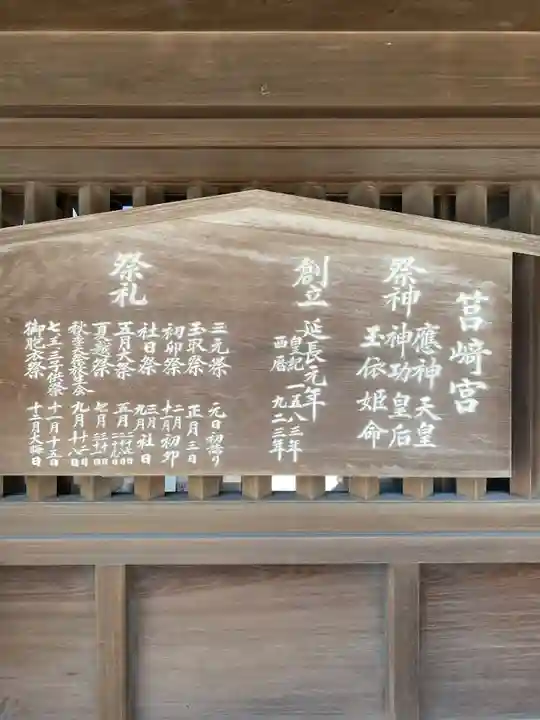 筥崎宮
祭神 應神天皇
神功皇后
玉依姫命
創立 延長元年
皇紀 一五八三年
西暦 九二三年
祭礼
三元祭 元日初詣り
玉取祭 正月三日
初卯祭 二月 十一月 初卯
社日祭 三月 九月 社日
五月大祭 五月
夏越祭 七月
秋季大祭放生会 九月
七五三子供祭 十一月十五日
御胞衣祭 十二月大晦日